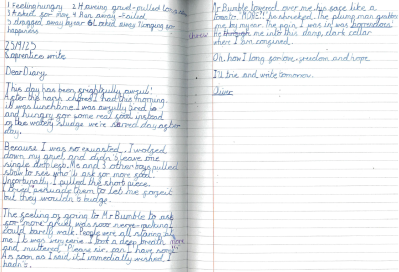 1 Feeling hungry 2 Having gruel-pulled
3 Asked for more 4 Ran away-
5 dragged away by ear 6 Locked away longing for
happiness
25/9/25
Apprentice write
Dear Diary,
This day has been frightfully awful!
After the I had this morning,
it was lunchtime. I was awfully tired
and hungry for some real food instead
of the watery sludge we're served day after
day.
Because I was so exausted, I wolfed
down my gruel and didn't leave one
single droplet. Me and 3 other boys pulled
straw to see who'll ask for more food.
Unfortunatly, I pulled the short piece.
I tried persuade them to let me forfeit
but they wouldn't budge.
The feeling of going to Mr Bumble to ask
for more gruel was sooo nerve-racking I
could barely walk. People were all staring at
me. It was very eerie. I took a deep breath
and muttered, "Please sir, can I have some more"
As soon as I said, it I immediatly wished I
hadn't.
Mr Bumble towered over me, his face like a
tomato. "MORE!!" he shrieked. The plump man grabbed
me by my ear. The pain I was in was horrendous!
He threw me into this damp, dark cellar
where I am consumed.
Oh, how I long for love, freedom and hope
I'll try and write tomorrow.
Oliver